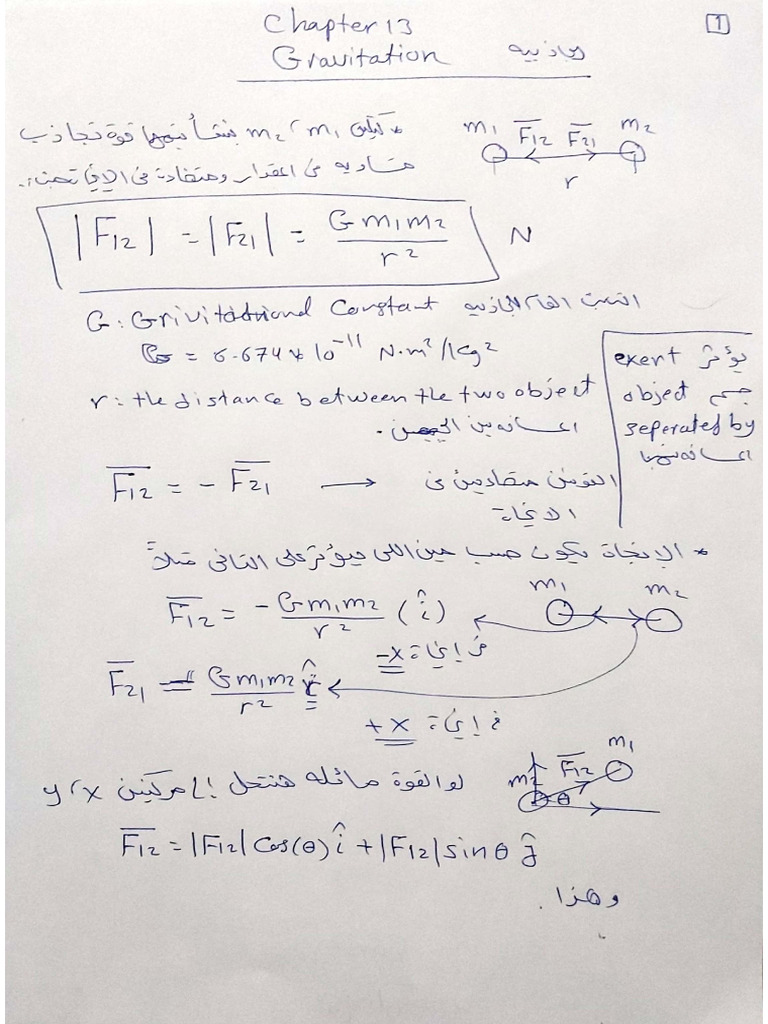 1
Chapter 13
Gravitation جاذبيه
* كتلتين m₁ ، m₂ ينشأ بينهما قوة تجاذب
متساويه في المقدار ومتضادة في الاتجاه
m₁ F̅₁₂ F̅₂₁ m₂
r
|F̅₁₂| = |F̅₂₁| = G m₁m₂ / r² N
G: Grivitational Constant الثابت العام للجاذبيه
G = 6.674 × 10⁻¹¹ N.m²/kg²
r: the distance between the two object
المسافه بين الجسمين.
exert يؤثر
object جسم
seperated by
المسافه بينهما
F̅₁₂ = - F̅₂₁ → القوتين متضادين في
الاتجاة
* الإتجاة يكون حسب مين اللي هيؤثر على التاني مثلاً
F̅₁₂ = - G m₁m₂ / r² (î) m₁ m₂
في إتجاة -x
F̅₂₁ = G m₁m₂ / r² î
في إتجاة +x
لو القوة مائله هنتحلل إلى مركبتين x ، y
m₁ m₂ F̅₁₂ θ
F̅₁₂ = |F₁₂| Cos(θ) î + |F₁₂| sin θ ĵ
وهذا.